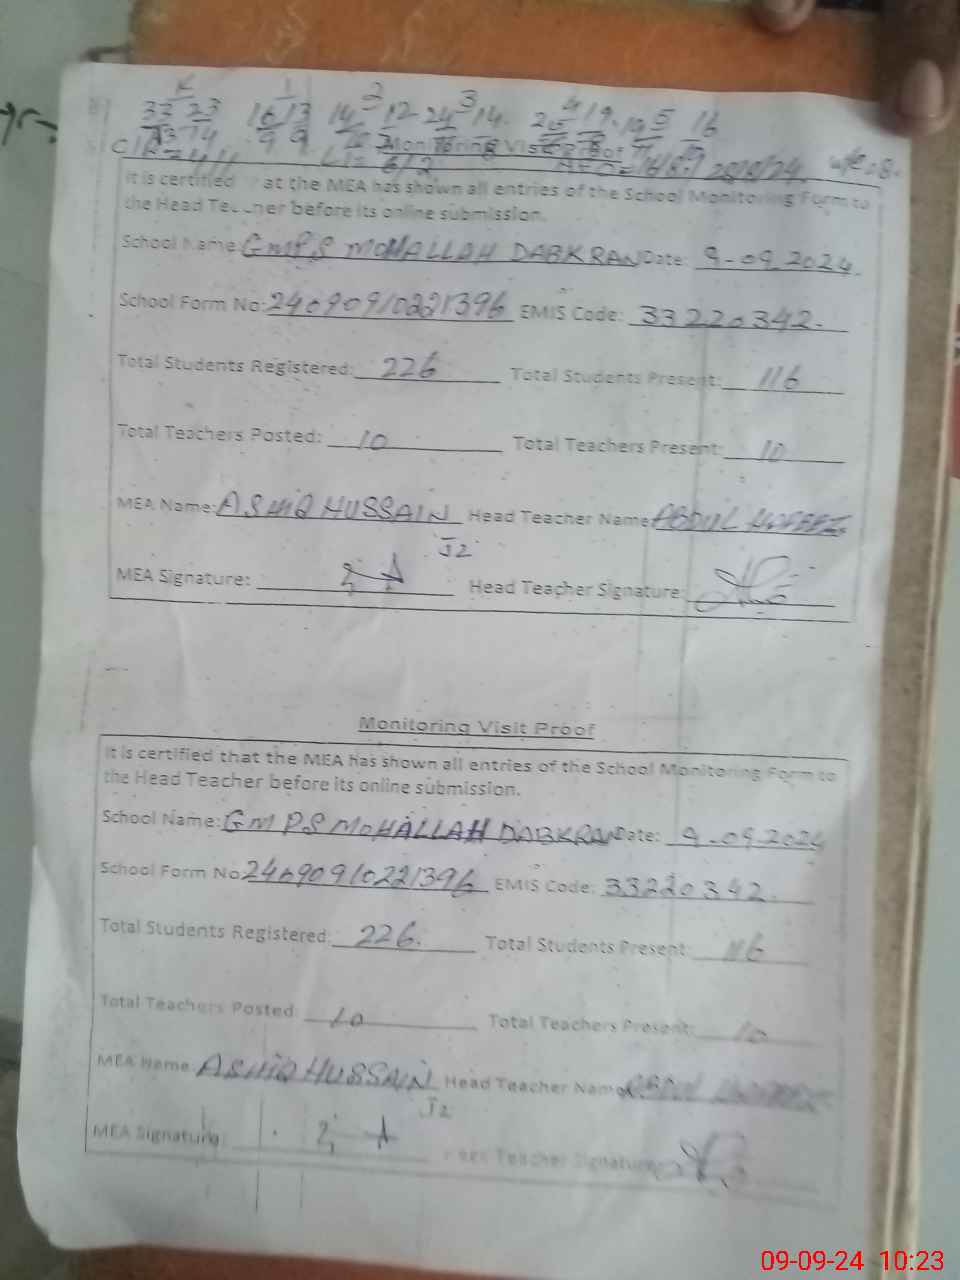 K 1 2 3 4 5
33 23 16 13 14 12 24 14. 19. 19 16
14 9 9
Monitoring Visit Proof
It is certified at the MEA has shown all entries of the School Monitoring Form to
the Head Teacher before its online submission.
School Name: GMPS MOHALLAH DABKRAN Date: 9-09.2024.
School Form No: 24090910221396 EMIS Code: 33220342.
Total Students Registered: 226 Total Students Present: 116
Total Teachers Posted: 10 Total Teachers Present: 10
MEA Name: ASHIQ HUSSAIN Head Teacher Name ABDUL HAFEEZ
J2
MEA Signature: Head Teacher Signature:
Monitoring Visit Proof
It is certified that the MEA has shown all entries of the School Monitoring Form to
the Head Teacher before its online submission.
School Name: GMPS MOHALLAH DABKRAN Date: 9-09.2024
School Form No 24090910221396 EMIS Code: 33220342.
Total Students Registered: 226. Total Students Present: 116
Total Teachers Posted: 10 Total Teachers Present: 10
MEA Name: ASHIQ HUSSAIN Head Teacher Name ABDUL
J2
MEA Signature: Head Teacher Signature:
09-09-24 10:23